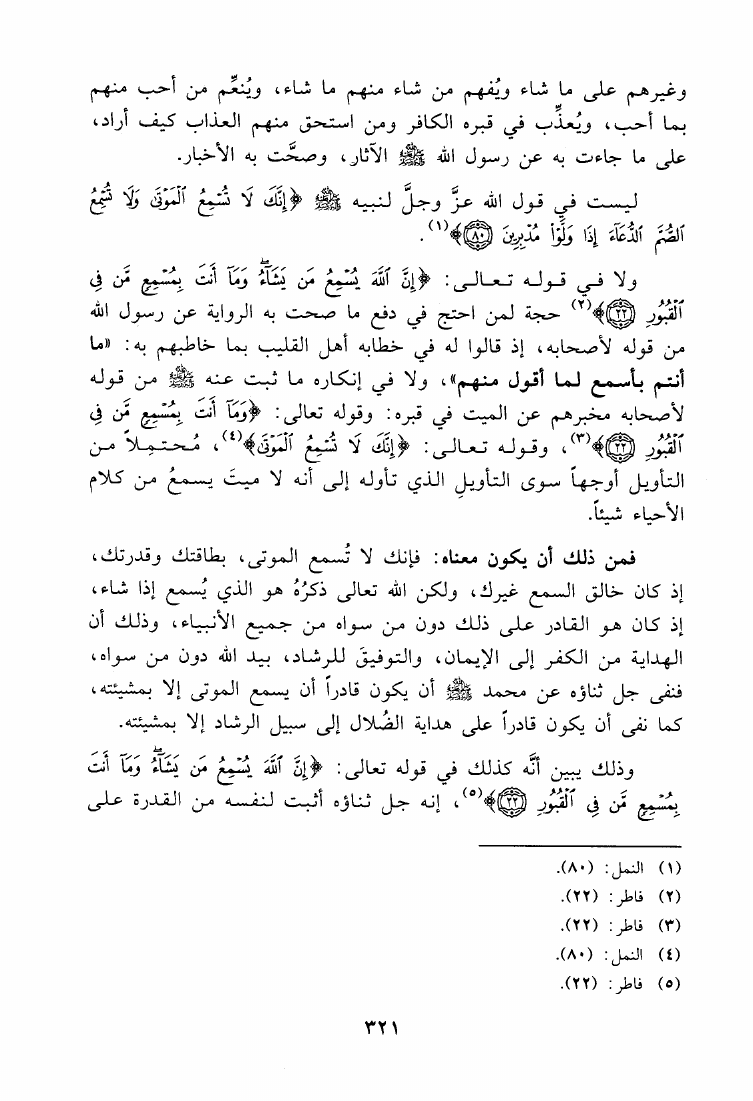 وغيرهم على ما شاء ويُفهم من شاء منهم ما شاء، ويُنعِّم من أحب منهم
بما أحب، ويُعذِّب في قبره الكافر ومن استحق منهم العذاب كيف أراد،
على ما جاءت به عن رسول الله ﷺ الآثار، وصحَّت به الأخبار.
ليست في قول الله عزَّ وجلَّ لنبيه ﷺ ﴿إِنَّكَ لَا تُسْمِعُ ٱلْمَوْتَىٰ وَلَا تُسْمِعُ
ٱلصُّمَّ ٱلدُّعَآءَ إِذَا وَلَّوْا۟ مُدْبِرِينَ ﴿٨٠﴾﴾(١).
ولا في قوله تعالى: ﴿إِنَّ ٱللَّهَ يُسْمِعُ مَن يَشَآءُ ۖ وَمَآ أَنتَ بِمُسْمِعٍ مَّن فِى
ٱلْقُبُورِ ﴿٢٢﴾﴾(٢) حجة لمن احتج في دفع ما صحت به الرواية عن رسول الله
من قوله لأصحابه، إذ قالوا له في خطابه أهل القليب بما خاطبهم به: «ما
أنتم بأسمع لما أقول منهم»، ولا في إنكاره ما ثبت عنه ﷺ من قوله
لأصحابه مخبرهم عن الميت في قبره: وقوله تعالى: ﴿وَمَآ أَنتَ بِمُسْمِعٍ مَّن فِى
ٱلْقُبُورِ ﴿٢٢﴾﴾(٣)، وقوله تعالى: ﴿إِنَّكَ لَا تُسْمِعُ ٱلْمَوْتَىٰ﴾(٤)، مُحتملاً من
التأويل أوجهاً سوى التأويلِ الذي تأوله إلى أنه لا ميتَ يسمعُ من كلام
الأحياء شيئاً.
فمن ذلك أن يكون معناه: فإنك لا تُسمع الموتى، بطاقتك وقدرتك،
إذ كان خالق السمع غيرك، ولكن الله تعالى ذكرُهُ هو الذي يُسمع إذا شاء،
إذ كان هو القادر على ذلك دون من سواه من جميع الأنبياء، وذلك أن
الهداية من الكفر إلى الإيمان، والتوفيقَ للرشاد، بيد الله دون من سواه،
فنفى جل ثناؤه عن محمد ﷺ أن يكون قادراً أن يسمع الموتى إلا بمشيئته،
كما نفى أن يكون قادراً على هداية الضُلال إلى سبيل الرشاد إلا بمشيئته.
وذلك يبين أنَّه كذلك في قوله تعالى: ﴿إِنَّ ٱللَّهَ يُسْمِعُ مَن يَشَآءُ ۖ وَمَآ أَنتَ
بِمُسْمِعٍ مَّن فِى ٱلْقُبُورِ ﴿٢٢﴾﴾(٥)، إنه جل ثناؤه أثبت لنفسه من القدرة على
(١) النمل: (٨٠).
(٢) فاطر: (٢٢).
(٣) فاطر: (٢٢).
(٤) النمل: (٨٠).
(٥) فاطر: (٢٢).
٣٢١